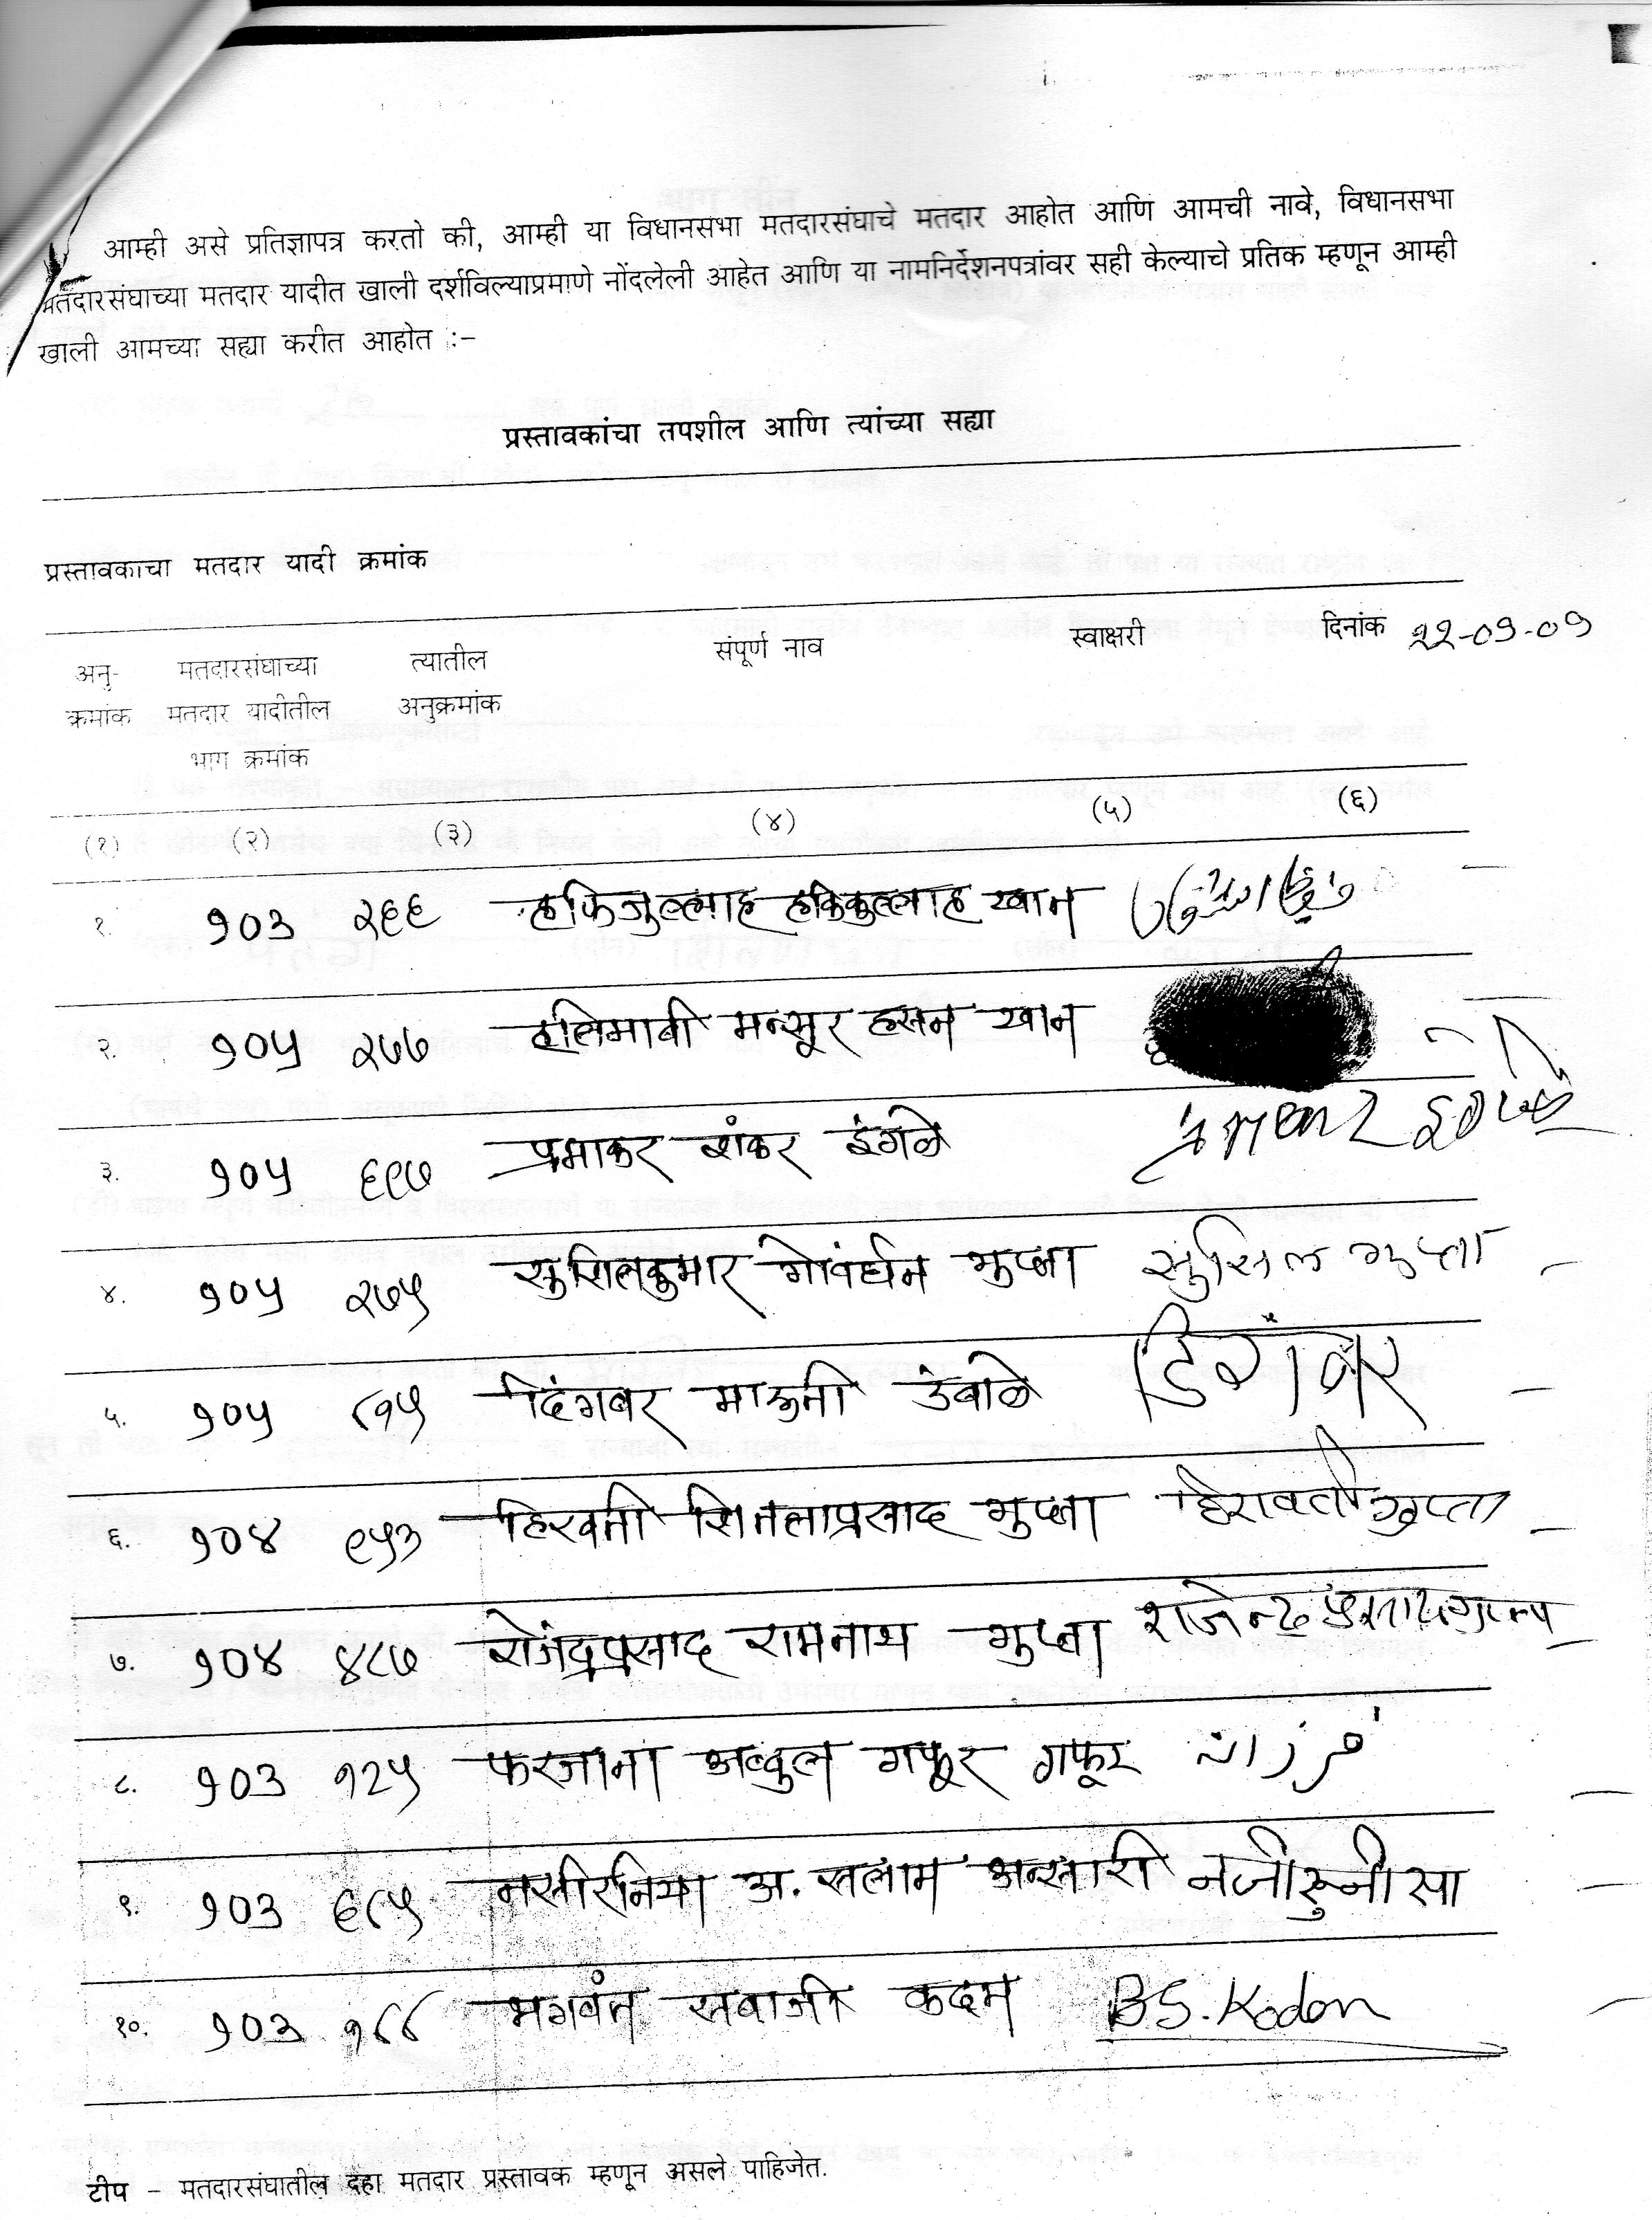 आम्ही असे प्रतिज्ञापत्र करतो की, आम्ही या विधानसभा मतदारसंघाचे मतदार आहोत आणि आमची नावे, विधानसभा
मतदारसंघाच्या मतदार यादीत खाली दर्शविल्याप्रमाणे नोंदलेली आहेत आणि या नामनिर्देशनपत्रांवर सही केल्याचे प्रतिक म्हणून आम्ही
खाली आमच्या सह्या करीत आहोत :-
प्रस्तावकांचा तपशील आणि त्यांच्या सह्या
प्रस्तावकाचा मतदार यादी क्रमांक
अनु- मतदारसंघाच्या त्यातील संपूर्ण नाव स्वाक्षरी दिनांक
क्रमांक मतदार यादीतील अनुक्रमांक
भाग क्रमांक
(१) (२) (३) (४) (५) (६)
१. १०३ २६६ हफिजुल्लाह हकिकुल्लाह खान
२. १०५ २७७ हलिमाबी मन्सूर हसन खान
३. १०५ ६९७ प्रभाकर शंकर इंगळे
४. १०५ २७५ सुशिलकुमार गोवंर्धन गुप्ता सुसिल गुप्ता
५. १०५ ८१५ दिंगबर मारुती उंबाळे
६. १०४ ९५३ हिरावती शितलाप्रसाद गुप्ता हिरावती गुप्ता
७. १०४ ४८७ राजेंद्रप्रसाद रामनाथ गुप्ता राजेन्द्र
८. १०३ १२५ फरजाना अब्दुल गफूर गफूर فرزانہ
९. १०३ ६८५ अ. सलाम अन्सारी
१०. १०३ १८८ भगवंत सबाजी कदम B.S. Kadam
टीप - मतदारसंघातील दहा मतदार प्रस्तावक म्हणून असले पाहिजेत.